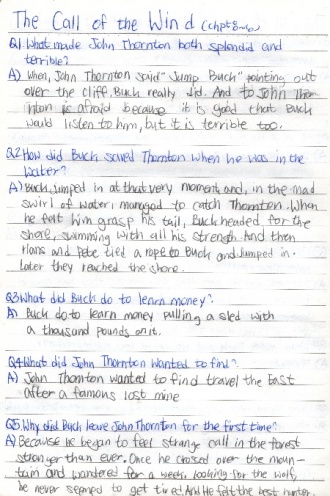 The Call of the Wind (chpt 5~6)
Q1. What made John Thornton both splendid and
terrible?
A) When, John Thornton said "Jump Buck" pointing out
over the cliff. Buck really did. And to John Thor
nton is afraid because it is good that Buck
would listen to him, but it is terrible too.
Q2 How did Buck saved Thornton when he was in the
water?
A) Buck jumped in at that very moment, and, in the mad
swirl of water, managed to catch Thornton. When
he felt him grasp his tail, Buck headed for the
shore, swimming with all his strength. And then
Hans and Pete tied a rope to Buck and jumped in.
Later they reached the shore.
Q3 What did Buck do to learn money?
A) Buck do to learn money pulling a sled with
a thousand pounds on it.
Q4 What did John Thornton wanted to find?
A) John Thornton wanted to find travel the East
after a famous lost mine
Q5 Why did Buck leave John Thornton for the first time?
A) Because he began to feel strange call in the forest
stronger than ever. Once he crossed over the moun-
tain and wandered for a week, looking for the wolf,
he never seemed to get tired. And He felt the best hunter